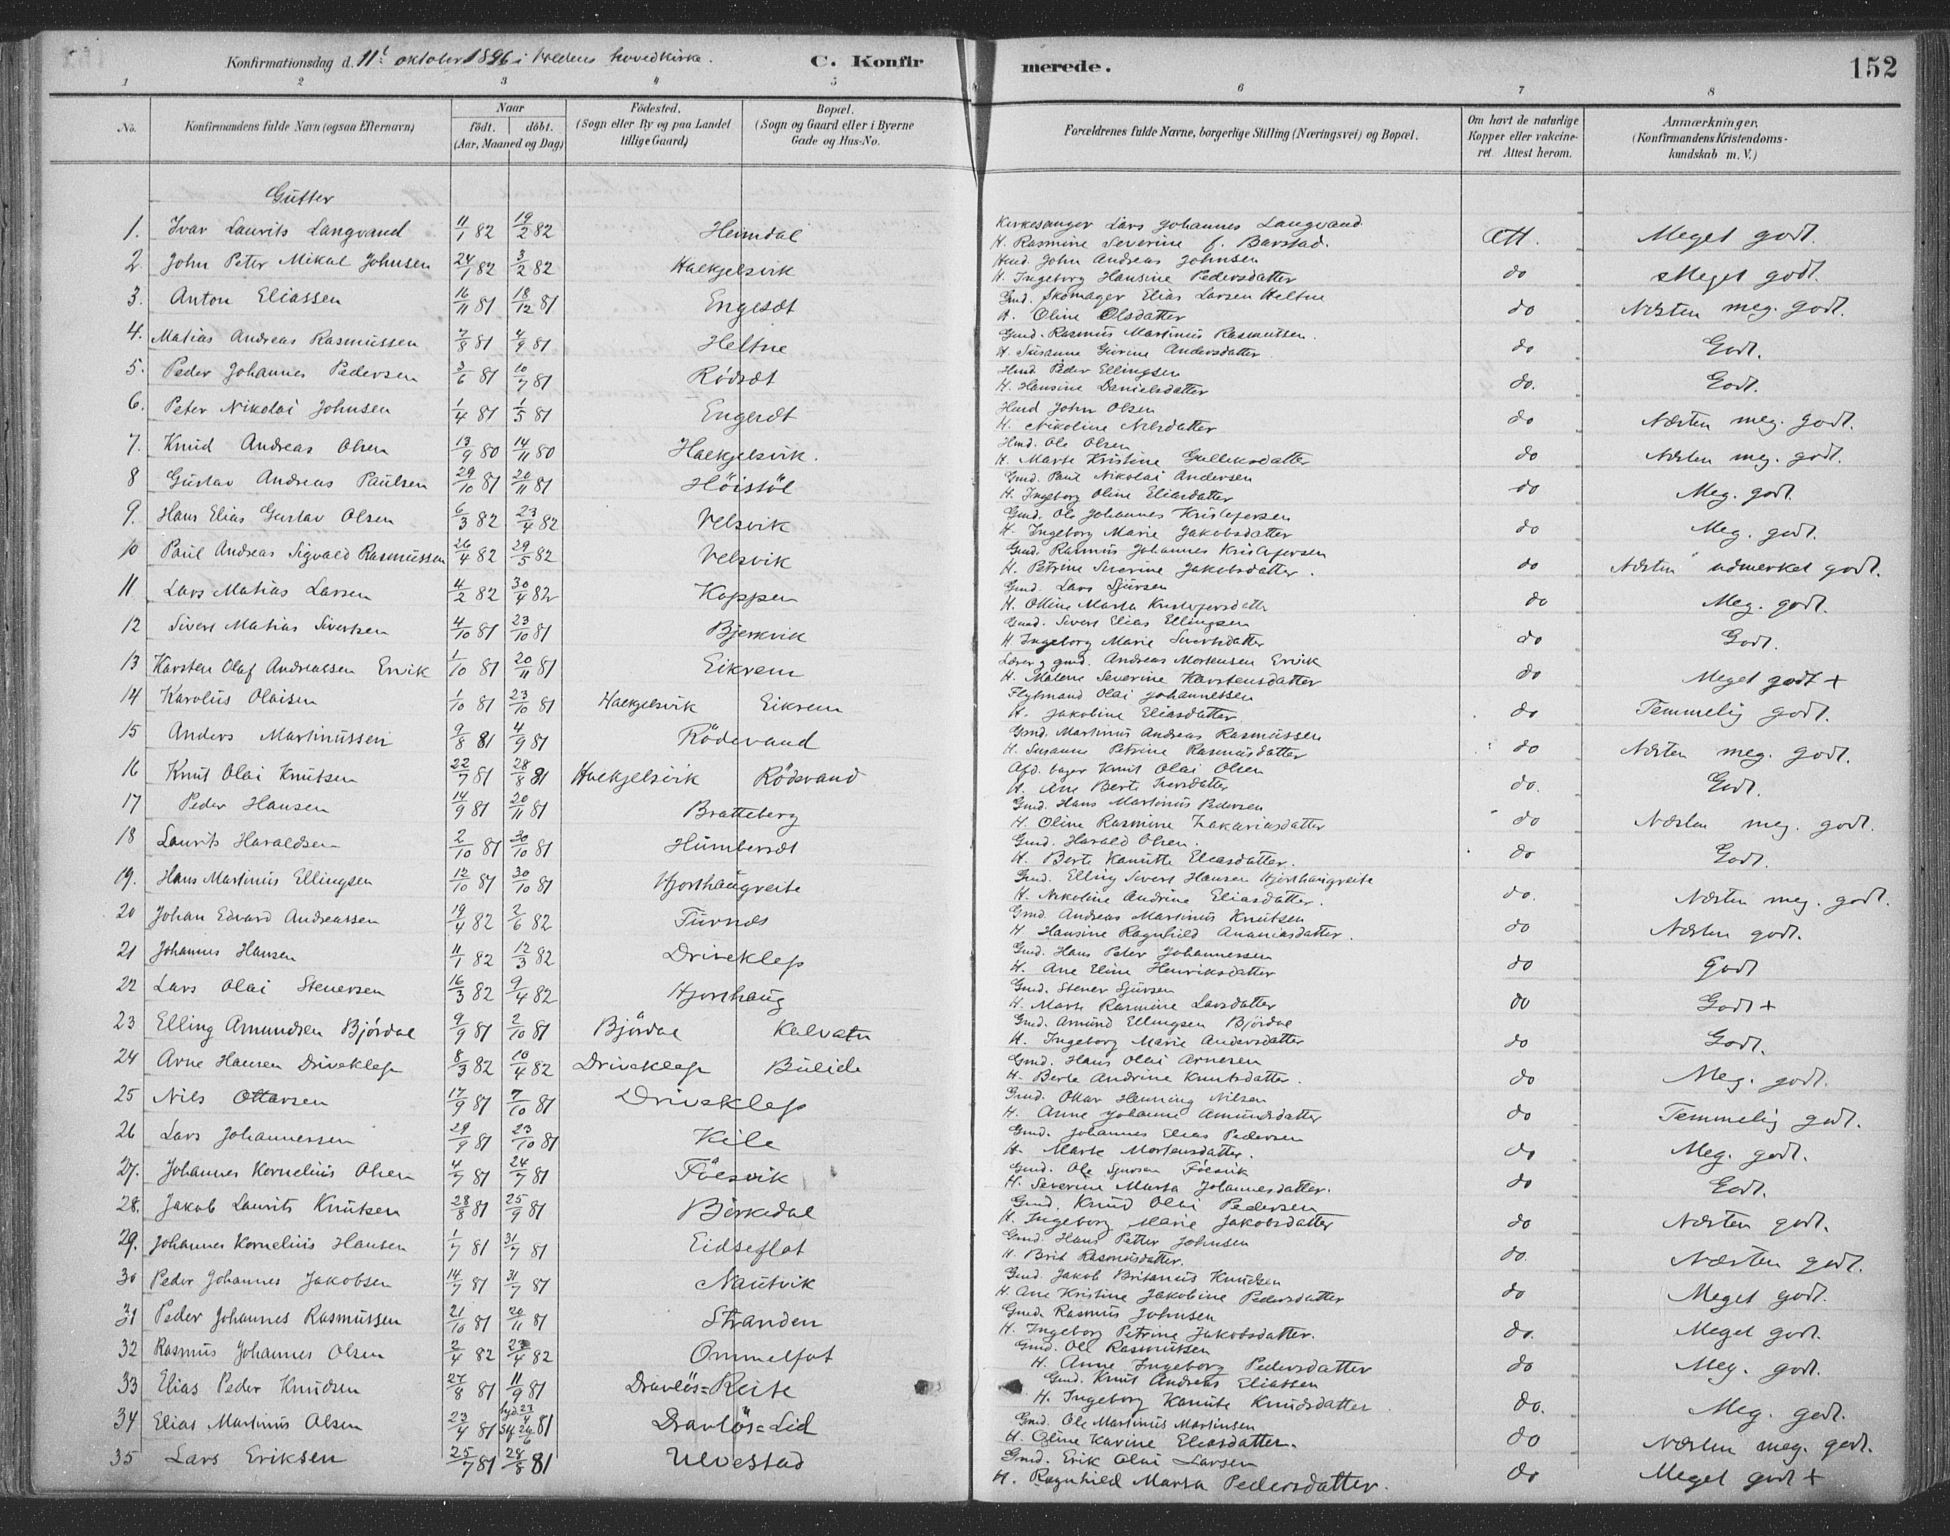 Konfirmationsdag d. 11t oktober 1896 i Voldens hovedkirke. C. Konfirmerede. 152
1 2 3 4 5 6 7 8
No. Konfirmandens fulde Navn (ogsaa Efternavn) Naar födt. döbt. (Aar, Maaned og Dag) Födested. (Sogn eller By og paa Landet tillige Gaard) Bopæl. (Sogn og Gaard eller i Byerne Gade og Hus-No. Forældrenes fulde Navne, borgerlige Stilling (Næringsvei) og Bopæl. Om havt de naturlige Kopper eller vakcineret. Attest herom. Anmærkninger, (Konfirmandens Kristendomskundskab m. V.)
Gutter
1. Ivar Laurits Langvand 11/1 82 19/2 82 Heimdal Kirkesanger Lars Johannes Langvand H. Rasmine Severine f. Barstad. Att. Meget godt.
2. John Peter Mikal Johnsen 24/1 82 3/2 82 Halkjelsvik Hmd. John Andreas Johnsen H. Ingeborg Hansine Pedersdatter do Meget godt.
3. Anton Eliassen 16/11 81 18/12 81 Engesæt Gmd. Skomager Elias Larsen Heltne H. Oline Olsdatter do Næsten meg. godt.
4. Matias Andreas Rasmussen 7/8 81 4/9 81 Heltne Gmd. Rasmus Martinus Rasmussen. H. Susanne Gurine Andersdatter do Godt.
5. Peder Johannes Pedersen 3/6 81 10/7 81 Rödsæt Hmd. Peder Ellingsen H. Hansine Danielsdatter do. Godt.
6. Peter Nikolai Johnsen 1/4 81 1/5 81 Engesæt Hmd John Olsen H. Nikoline Nilsdatter do Næsten meg. godt.
7. Knud Andreas Olsen 13/9 80 14/11 80 Halkjelsvik. Hmd. Ole Olsen H. Marte Kristine Gulleksdatter do Næsten meg. godt.
8 Gustav Andreas Paulsen 29/10 81 20/11 81 Höistöl Gmd. Paul Nikolai Andersen H. Ingeborg Oline Eliasdatter do Meg. godt.
9. Hans Elias Gustav Olsen 6/3 82 23/4 82 Velsvik Gmd. Ole Johannes Kristofersen H. Ingeborg Marie Jakobsdatter do Meg. godt.
10 Paul Andreas Sigvald Rasmussen 26/4 82 29/5 82 Velsvik Gmd. Rasmus Johannes Kristofersen H. Petrine Severine Jakobsdatter. do Næsten udmerket godt.
11 Lars Matias Larsen 4/2 82 30/4 82 Koppen Gmd. Lars Sjursen H. Oline Marta Kristofersdatter do Meg. godt.
12 Sivert Matias Sivertsen 4/10 81 23/10 81 Bjerkvik Gmd. Sivert Elias Ellingsen H Ingeborg Marie Sivertsdatter do Godt.
13 Karsten Olaf Andreassen Ervik 1/10 81 20/11 81 Eikrem Lærer g gmd. Andreas Mortensen Ervik H. Malene Severine Karstensdatter do Meget godt +
14 Karolus Olaisen 1/10 81 23/10 81 Halkjelsvik Eikrem Flytmand Olai Johannessen H. Jakobine Eliasdatter do Temmelig godt.
15 Anders Martinussen 9/8 81 4/9 81 Rödevand Gmd. Martinus Andreas Rasmussen H. Susanne Petrine Rasmusdatter do Næsten meg. godt.
16 Knut Olai Knutsen 22/7 81 28/8 81 Halkjelsvik Rödevand Afd. bager Knut Olai Olsen H. Ane Berte Iversdatter do. Godt.
17 Peder Hansen 14/9 81 20/11 81 Bratteberg Gmd. Hans Martinus Pedersen H. Oline Rasmine Zakariasdatter do Næsten meg. godt.
18 Laurits Haraldsen 2/10 81 30/10 81 Humbersæt Gmd. Harald Olsen. H. Berte Kanutte Eliasdatter. do Godt.
19. Hans Martinus Ellingsen 12/10 81 30/10 81 Hjorthaugreite Gmd. Elling Sivert Hansen Hjorthaugreite H. Nikoline Andrine Eliasdatter. do. Næsten meg. godt.
20 Johan Edvard Andreassen 19/4 82 2/6 82 Furnæs Gmd. Andreas Martinus Knutsen H Hansine Ragnhild Ananiasdatter. do Næsten godt.
21 Johannes Hansen 11/1 82 12/3 82 Driveklep Gmd. Hans Peter Johannessen H. Ane Eline Henriksdatter do Godt
22 Lars Olai Stenersen 16/3 82 9/4 82 Hjorthaug Gmd. Stener Sjursen H. Marte Rasmine Larsdatter do Godt +
23 Elling Amundsen Björdal 9/9 81 2/10 81 Björdal Kalvatn Gmd. Amund Ellingsen Björdal H. Ingeborg Marie Andersdatter do Godt.
24 Arne Hansen Driveklep 8/3 82 10/4 82 Driveklep Bulid Gmd. Hans Olai Arnesen H. Berte Andrine Knutsdatter. do Meg. godt.
25 Nils Ottarsen 17/9 81 7/10 81 Driveklep Gmd. Ottar Henning Nilsen H. Anne Johanne Amundsdatter do Temmelig godt.
26 Lars Johannessen 29/9 81 23/10 81 Kile Gmd. Johannes Elias Pedersen H. Marte Mortensdatter. do Meg. godt.
27. Johannes Kornelius Olsen 4/7 81 24/7 81 Fölsvik Gmd. Ole Sjursen Fölsvik H. Severine Marta Johannesdatter. do Godt.
28. Jakob Laurits Knutsen 28/8 81 25/9 81 Börkedal Gmd. Knud Olai Pedersen H. Ingeborg Marie Jakobsdatter do Næsten godt.
29. Johannes Kornelius Hansen 1/7 81 31/7 81 Eidseflot Gmd. Hans Petter Johnsen H. Brit Rasmusdatter. do Næsten godt.
30 Peder Johannes Jakobsen 14/7 81 31/7 81 Nautvik Gmd. Jakob Britanus Knudsen H. Ane Kristine Jakobine Pedersdatter do Meget godt.
31 Peder Johannes Rasmussen 21/10 81 20/11 81 Stranden Gmd. Rasmus Johnsen H. Ingeborg Petrine Jakobsdatter. do. Meget godt.
32 Rasmus Johannes Olsen 2/4 82 23/4 82 Ommelfot Gmd. Ole Rasmussen H. Anne Ingeborg Pedersdatter do Meg. godt.
33 Elias Peder Knudsen 27/8 81 11/9 81 Dravlös=Reite Gmd. Knut Andreas Eliassen H. Ingeborg Kanute Knudsdatter. do. Meg. godt.
34 Elias Martinus Olsen 23/4 81 hjd 23/4 stf 26/6 81 Dravlös=Lid Gmd. Ole Martinus Martinsen H. Oline Karine Eliasdatter. do Næsten meg. godt.
35 Lars Eriksen 25/7 81 28/8 81 Ulvestad Gmd. Erik Olai Larsen H. Ragnhild Marta Pedersdatter. do Meget godt +